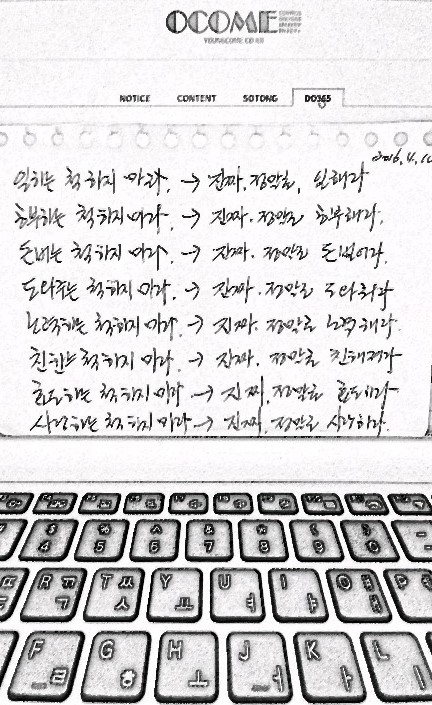 OCOME
YOUNGCOME.CO.KR
NOTICE CONTENT SOTONG DO365
2016.4.
일하는 척하지 마라. → 진짜. 정말로. 일해라
공부하는 척하지 마라. → 진짜. 정말로 공부해라.
돈버는 척하지 마라. → 진짜. 정말로 돈벌어라.
도와주는 척하지 마라. → 진짜. 정말로 도와줘라
노력하는 척하지 마라. → 진짜. 정말로 노력해라.
친한는 척하지 마라. → 진짜. 정말로 친해져라
효도하는 척하지 마라 → 진짜. 정말로 효도해라
사랑하는 척하지 마라 → 진짜. 정말로 사랑하라.
$ % ^ & * ( )
4 5 6 7 8 9 0
ㄸ R ㄲ ㄱ T ㅆ ㅅ Y ㅛ U ㅕ I ㅑ O ㅒ ㅐ P
F ㄹ G ㅎ H ㅗ J ㅓ K ㅏ L ㅣ